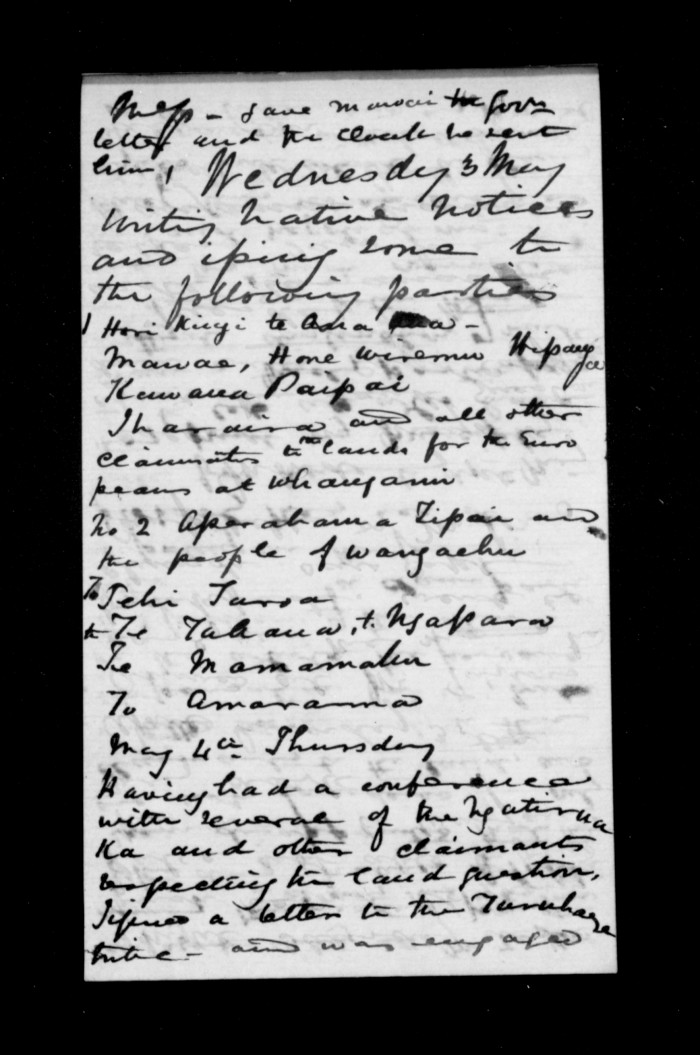 gave Mawai the Govr
letter and the cloak he sent
him, Wednesday 3 May
writing Native Notices
and issuing some to
the following parties
1 Hori Kingi te Ana
Mawae, Hone Wiremu Hipango
Kawana Paipai
Iharaira and all other
claimants to the lands for the Euro
peans at Whanganui
No 2 Aperahama Tipai and
the people of Wangaehu
To Tehi Taroa
to Te Tahana, + Ngapara
Te Mamamaku
To Amarama
May 4th Thursday
Having had a conference
with several of the Ngatirua
Ka and other claimants
respecting the land question,
a letter to the
tribe - and was engaged